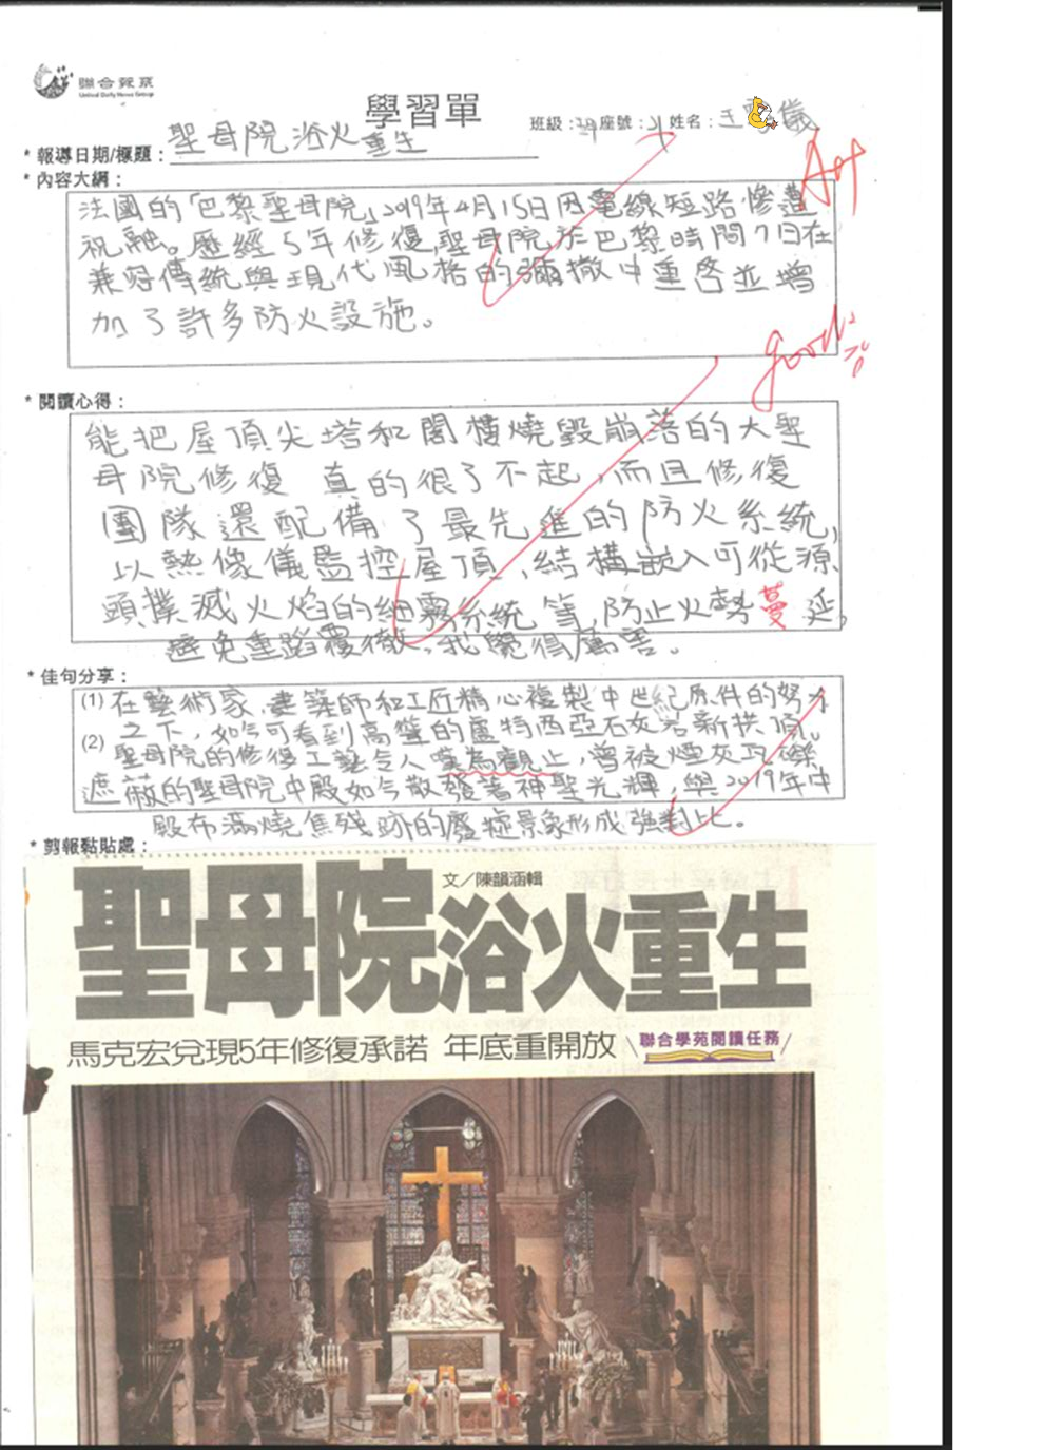 聯合報系
United Daily News Group
學習單
班級： 座號： 姓名：王 儀
* 報導日期/標題：聖母院浴火重生
* 內容大綱：
法國的「巴黎聖母院」2019年4月15日因電線短路慘遭
祝融。歷經5年修復,聖母院於巴黎時間7日在
兼容傳統與現代風格的彌撒中重啓並增
加了許多防火設施。
good
* 閱讀心得：
能把屋頂尖塔和閣樓燒毀崩落的大聖
母院修復 真的很了不起,而且修復
團隊還配備了最先進的防火系統,
以熱像儀監控屋頂,結構嵌入可從源
頭撲滅火焰的細霧系統等,防止火勢蔓延。
避免重蹈覆徹,我覺得厲害。
* 佳句分享：
(1) 在藝術家,建築師和工匠精心複製中世紀原件的努力
之下,如今可看到高聳的盧特西亞石灰岩新拱頂。
(2) 聖母院的修復工藝令人嘆為觀止,曾被煙灰瓦礫
遮蔽的聖母院中殿如今散發著神聖光輝,與2019年中
殿布滿燒焦殘跡的廢墟景象形成強對比。
* 剪報黏貼處：
文／陳韻涵輯
聖母院浴火重生
馬克宏兌現5年修復承諾 年底重開放
聯合學苑閱讀任務